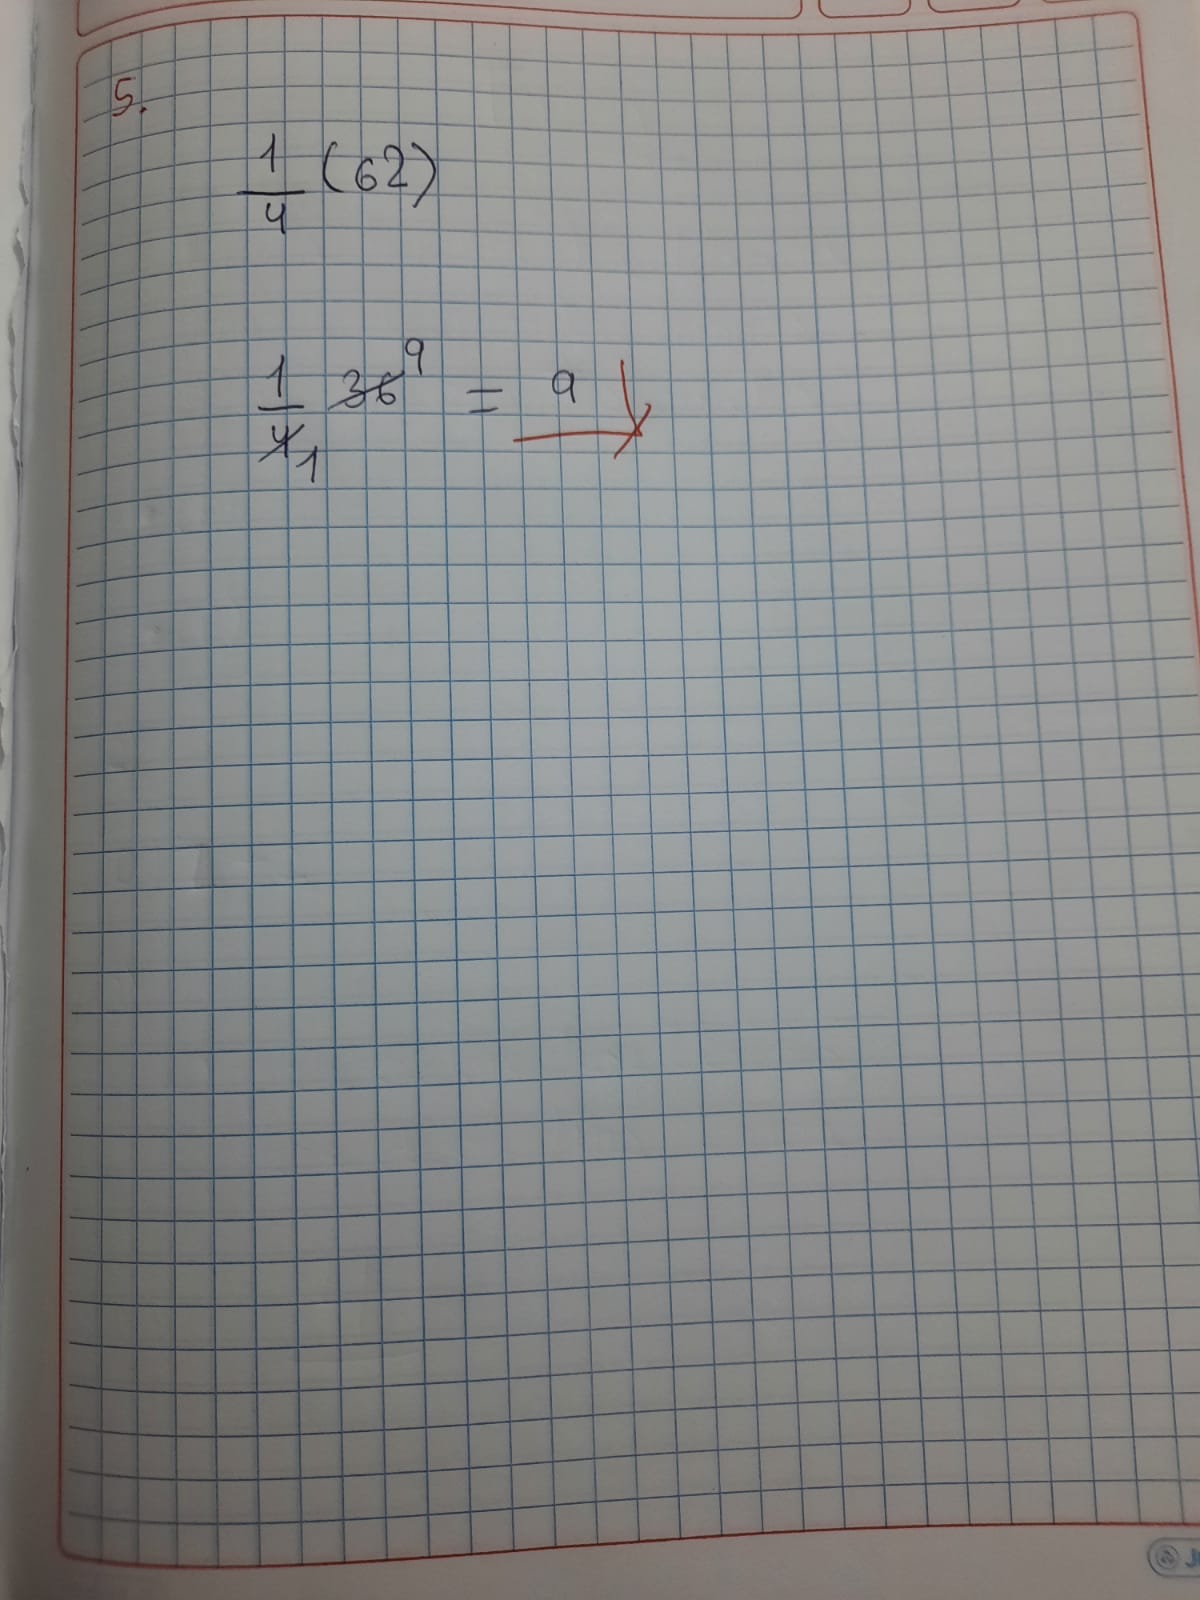 5.
1/4 (62)
1/4 1 36 9 = 9